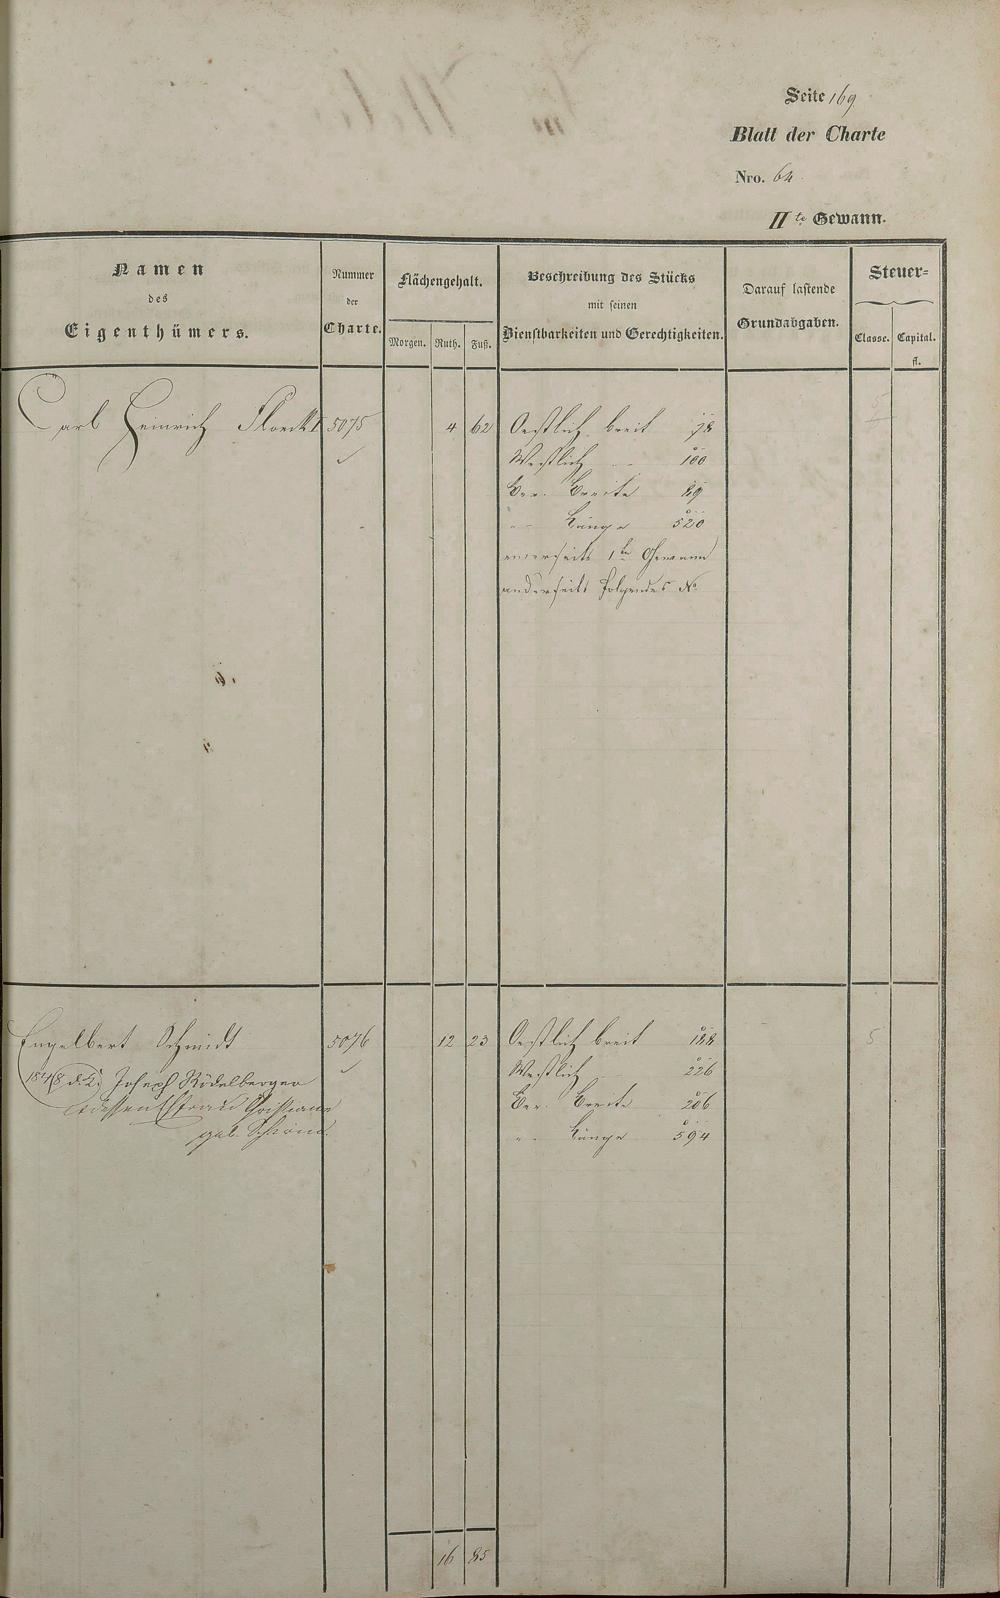 Seite 169
Blatt der Charte
Nro. 64
IIte Gewann.
Namen
des
Eigenthümers.
Nummer
der
Charte.
Flächengehalt.
Morgen. Ruth. Fuß.
Beschreibung des Stücks
mit seinen
Dienstbarkeiten und Gerechtigkeiten.
Darauf lastende
Grundabgaben.
Steuer-
Classe. Capital.
fl.
Carl Heinrich 5075 4 62 Oestlich breit 78 5
Westlich 100
Ver. Breite 89
" Länge 520
einerseits 1te Gewann
anderseits folgendes No
Engelbert Schmidt 5076 12 23 Oestlich breit 188 5
1848 d. 2. Joseph Rödelberger Westlich 226
Ehefrau Christiane Ver. Breite 206
geb. " Länge 594
16 85